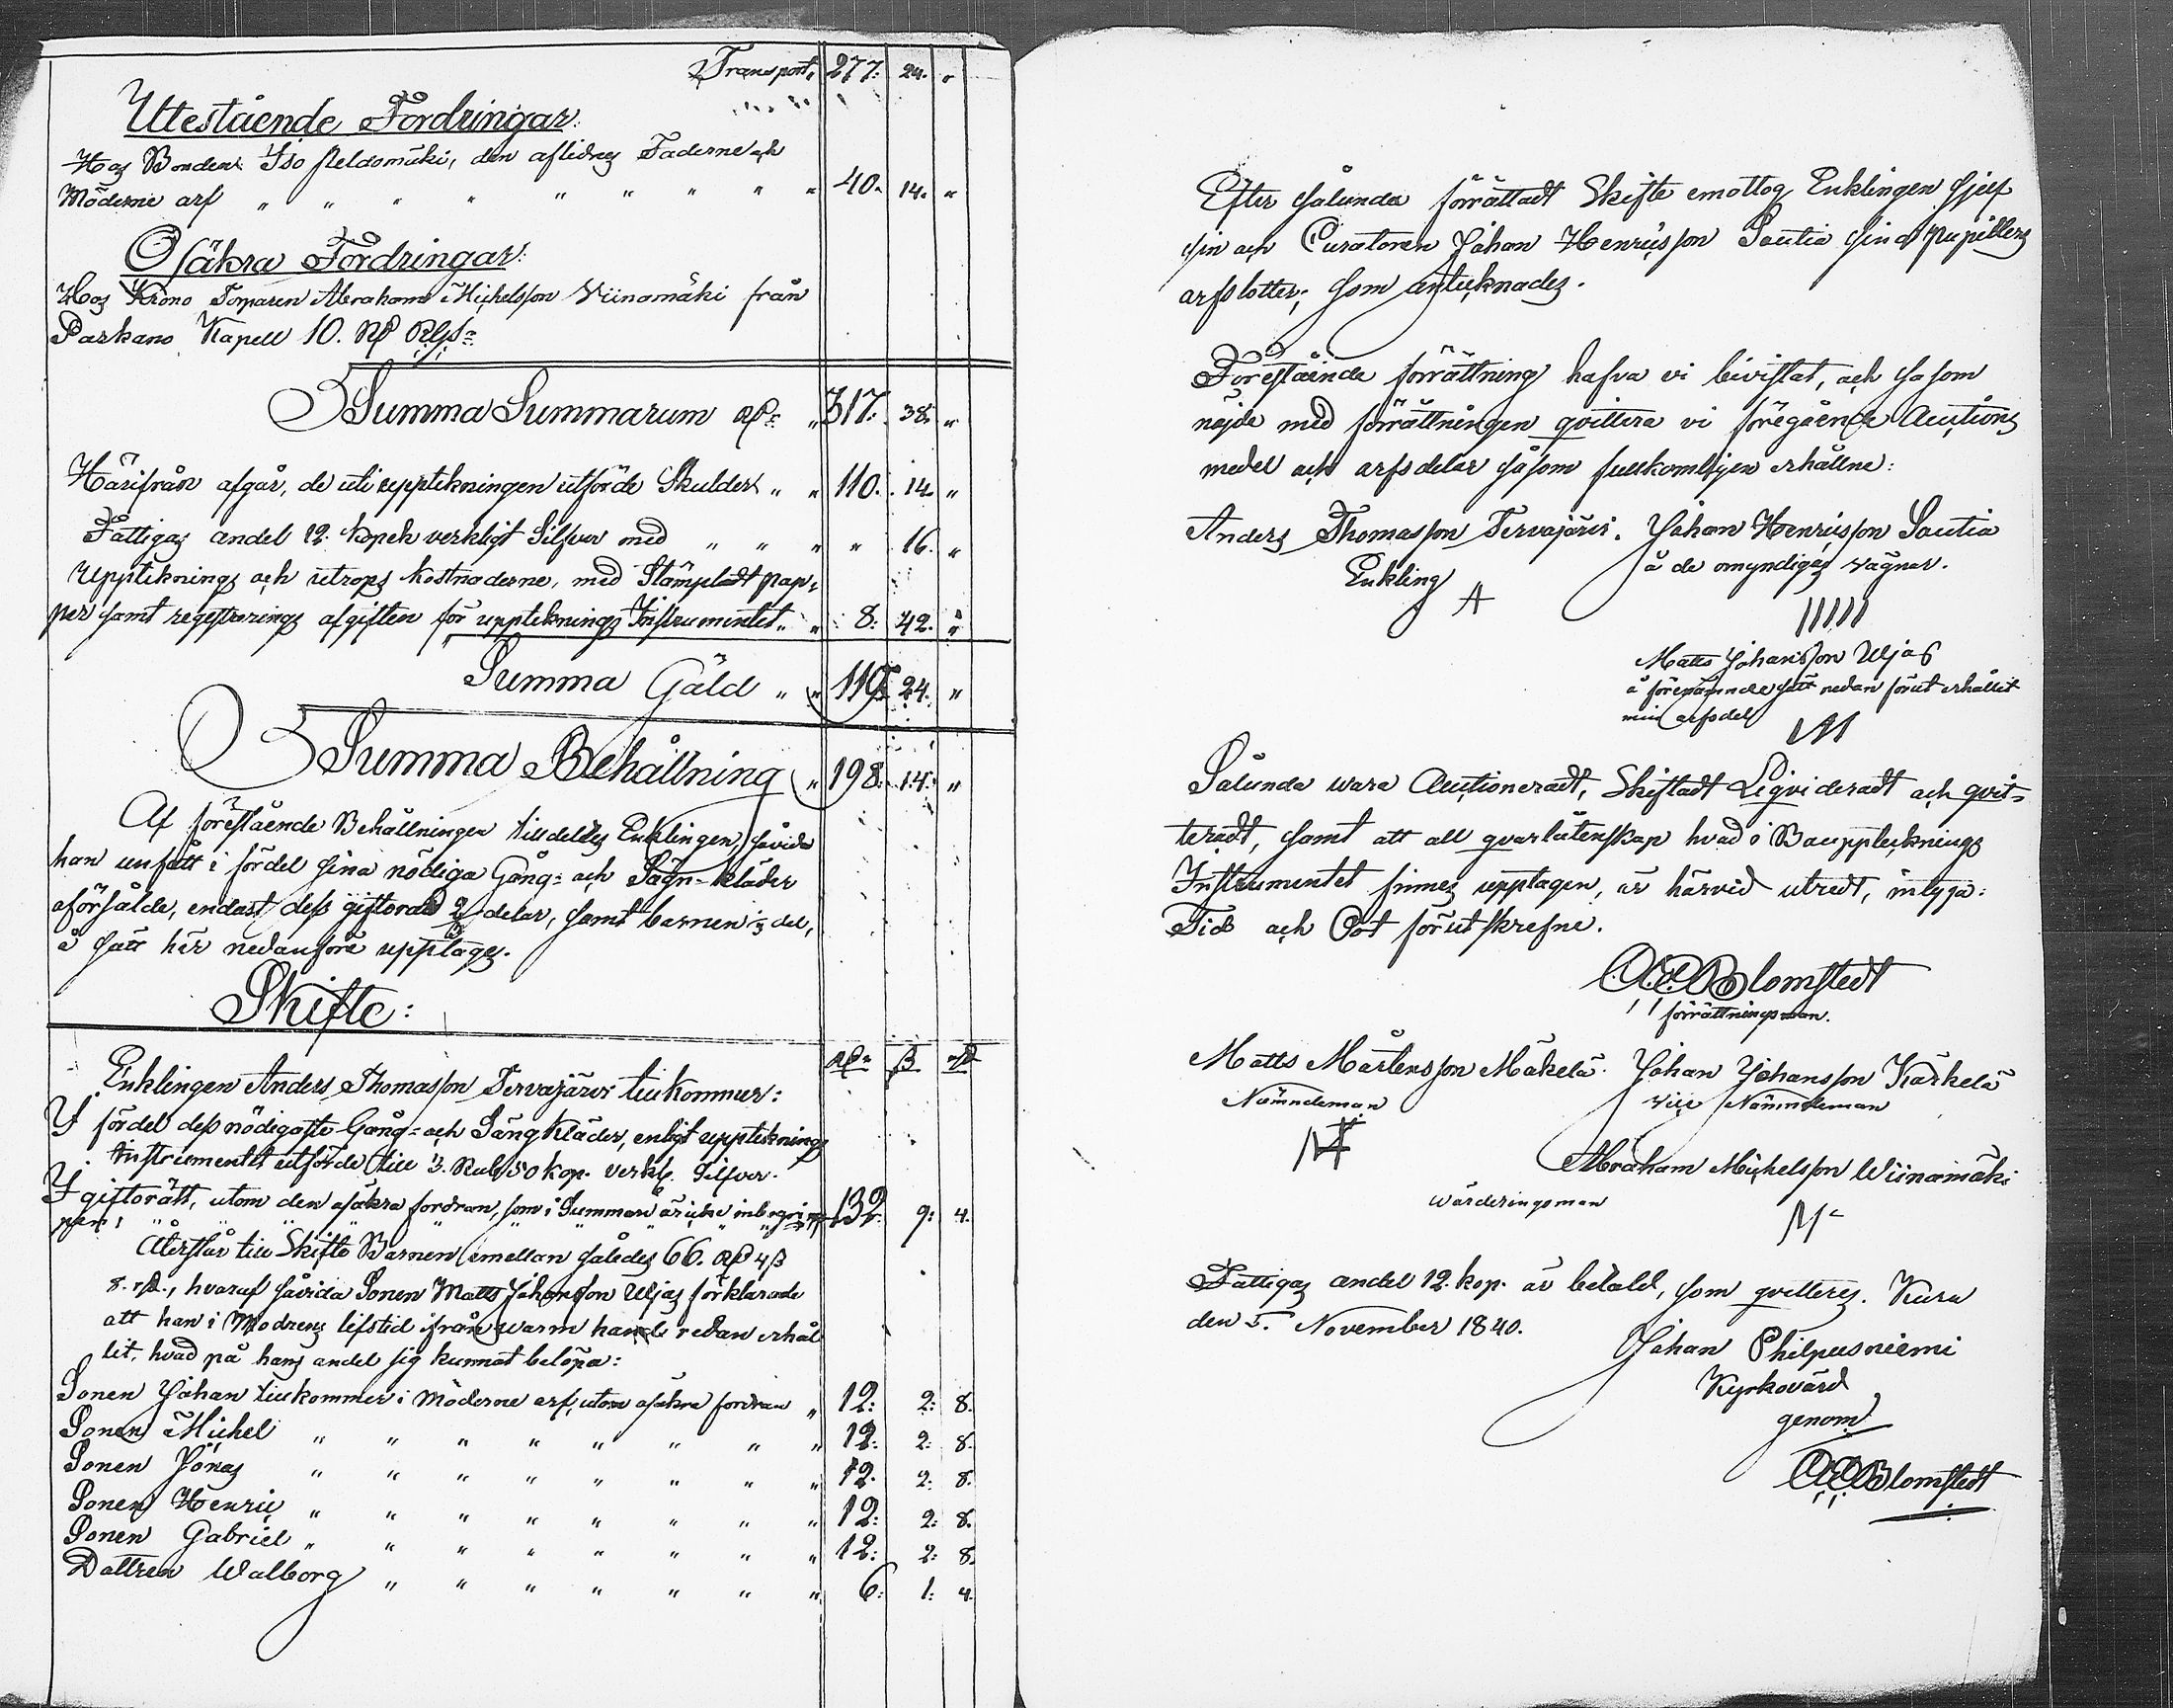 Transport, 277: 24. "
Utestående Fordringar:
Hos Bonden Iso Keldomäki, den aflidnes Fäderne och
Möderne arf " " " " " " " " " 40. 14. "
Osäkra Fordringar:
Hos Krono Torparen Abraham Michelsson Viinamäki från
Parkano Kapell 10. Rß Rgs=
Summa Summarum Rß: " 317: 38. "
Härifrån afgår, de uti upptekningen utförde Skulder " " 110. 14. "
Fattigas andel 12. kopek verkligt Silfver med " " " " 16. "
Upptecknings och utrops kostnaderne, med Stämpladt pap-
per samt registrerings afgiften för upptecknings Instrumentet " " 8: 42. "
Summa Gäld " " 119. 24. "
Summa Behållning " 198: 14. "
Af förestående Behållningen tilldeltes Enklingen, såvida
han unfått i fördel sina nödiga Gång- och Sägn-kläder
oförsålde, endast dess giftorätt 2/3 delar, samt barnen 1/3 del,
å sätt här nedanföre upptages.
Skifte:
Rß ß rst
Enklingen Anders Thomasson Tervajärvi tillkommer:
I fördel dess nödigaste Gång- och Sängkläder, enligt upptecknings
Instrumentet utförde till 3. Rub. 50 kop. verkl. Silfver.
I giftorätt, utom den osäkra fordran, som i Summan är icke inbegri-
pen: " " " " " " " " " 132: 9: 4.
Återstår till Skifte Barnen emellan således 66. Rß 4 ß
8. rst., hvaraf såvida Sonen Matts Johansson Ujas förklarade
att han i Modrens lifstid ifrån warm hand redan erhål-
lit, hvad på hans andel sig kunnat belöpa:
Sonen Johan tillkommer i Möderne arf, utom osäkra fordran " 12: 2: 8.
Sonen Michel " " " " " " " " 12: 2: 8.
Sonen Jonas " " " " " " " " 12. 2: 8.
Sonen Henric " " " " " " " " 12: 2: 8.
Sonen Gabriel " " " " " " " " 12: 2: 8.
Dottren Walborg " " " " " " " 6: 1: 4.
Efter sålunda förrättadt Skifte emottog Enklingen sjelf
sin och Curatoren Johan Henricsson Sautia sina pupillers
arfslotter; som antecknades.
Förestående förrättning hafva vi bivistat, och såsom
nöjde med förrättningen qvittera vi föregående Auctions
medel och arfsdelar såsom fullkomligen erhållne:
Anders Thomasson Tervajärvi. Johan Henricsson Sautia
Enkling å de omyndigas vägnar.
Matts Johansson Ujas
å förenämnde sätt redan förut erhållit
min arfsdel
Sålunda wara Auctioneradt, Skiftadt Liqvideradt och qvit-
teradt, samt att all qvarlåtenskap hvad i Boupptecknings
Instrumentet finnes upptagen, är härvid utredt, intyga:
Tid och Ort förutskrefne.
A.E. Blomstedt
förrättningsman.
Matts Mårtensson Mäkelä. Johan Johansson Kärkelä
Nämndeman vice Nämndeman
Abraham Michelsson Wiinamäki
Wärderingsman
Fattigas andel 12. kop. är betald, som qvitteras. Kuru
den 5. November 1840.
Johan Philpusniemi
Kyrkovärd
genom
A.E. Blomstedt